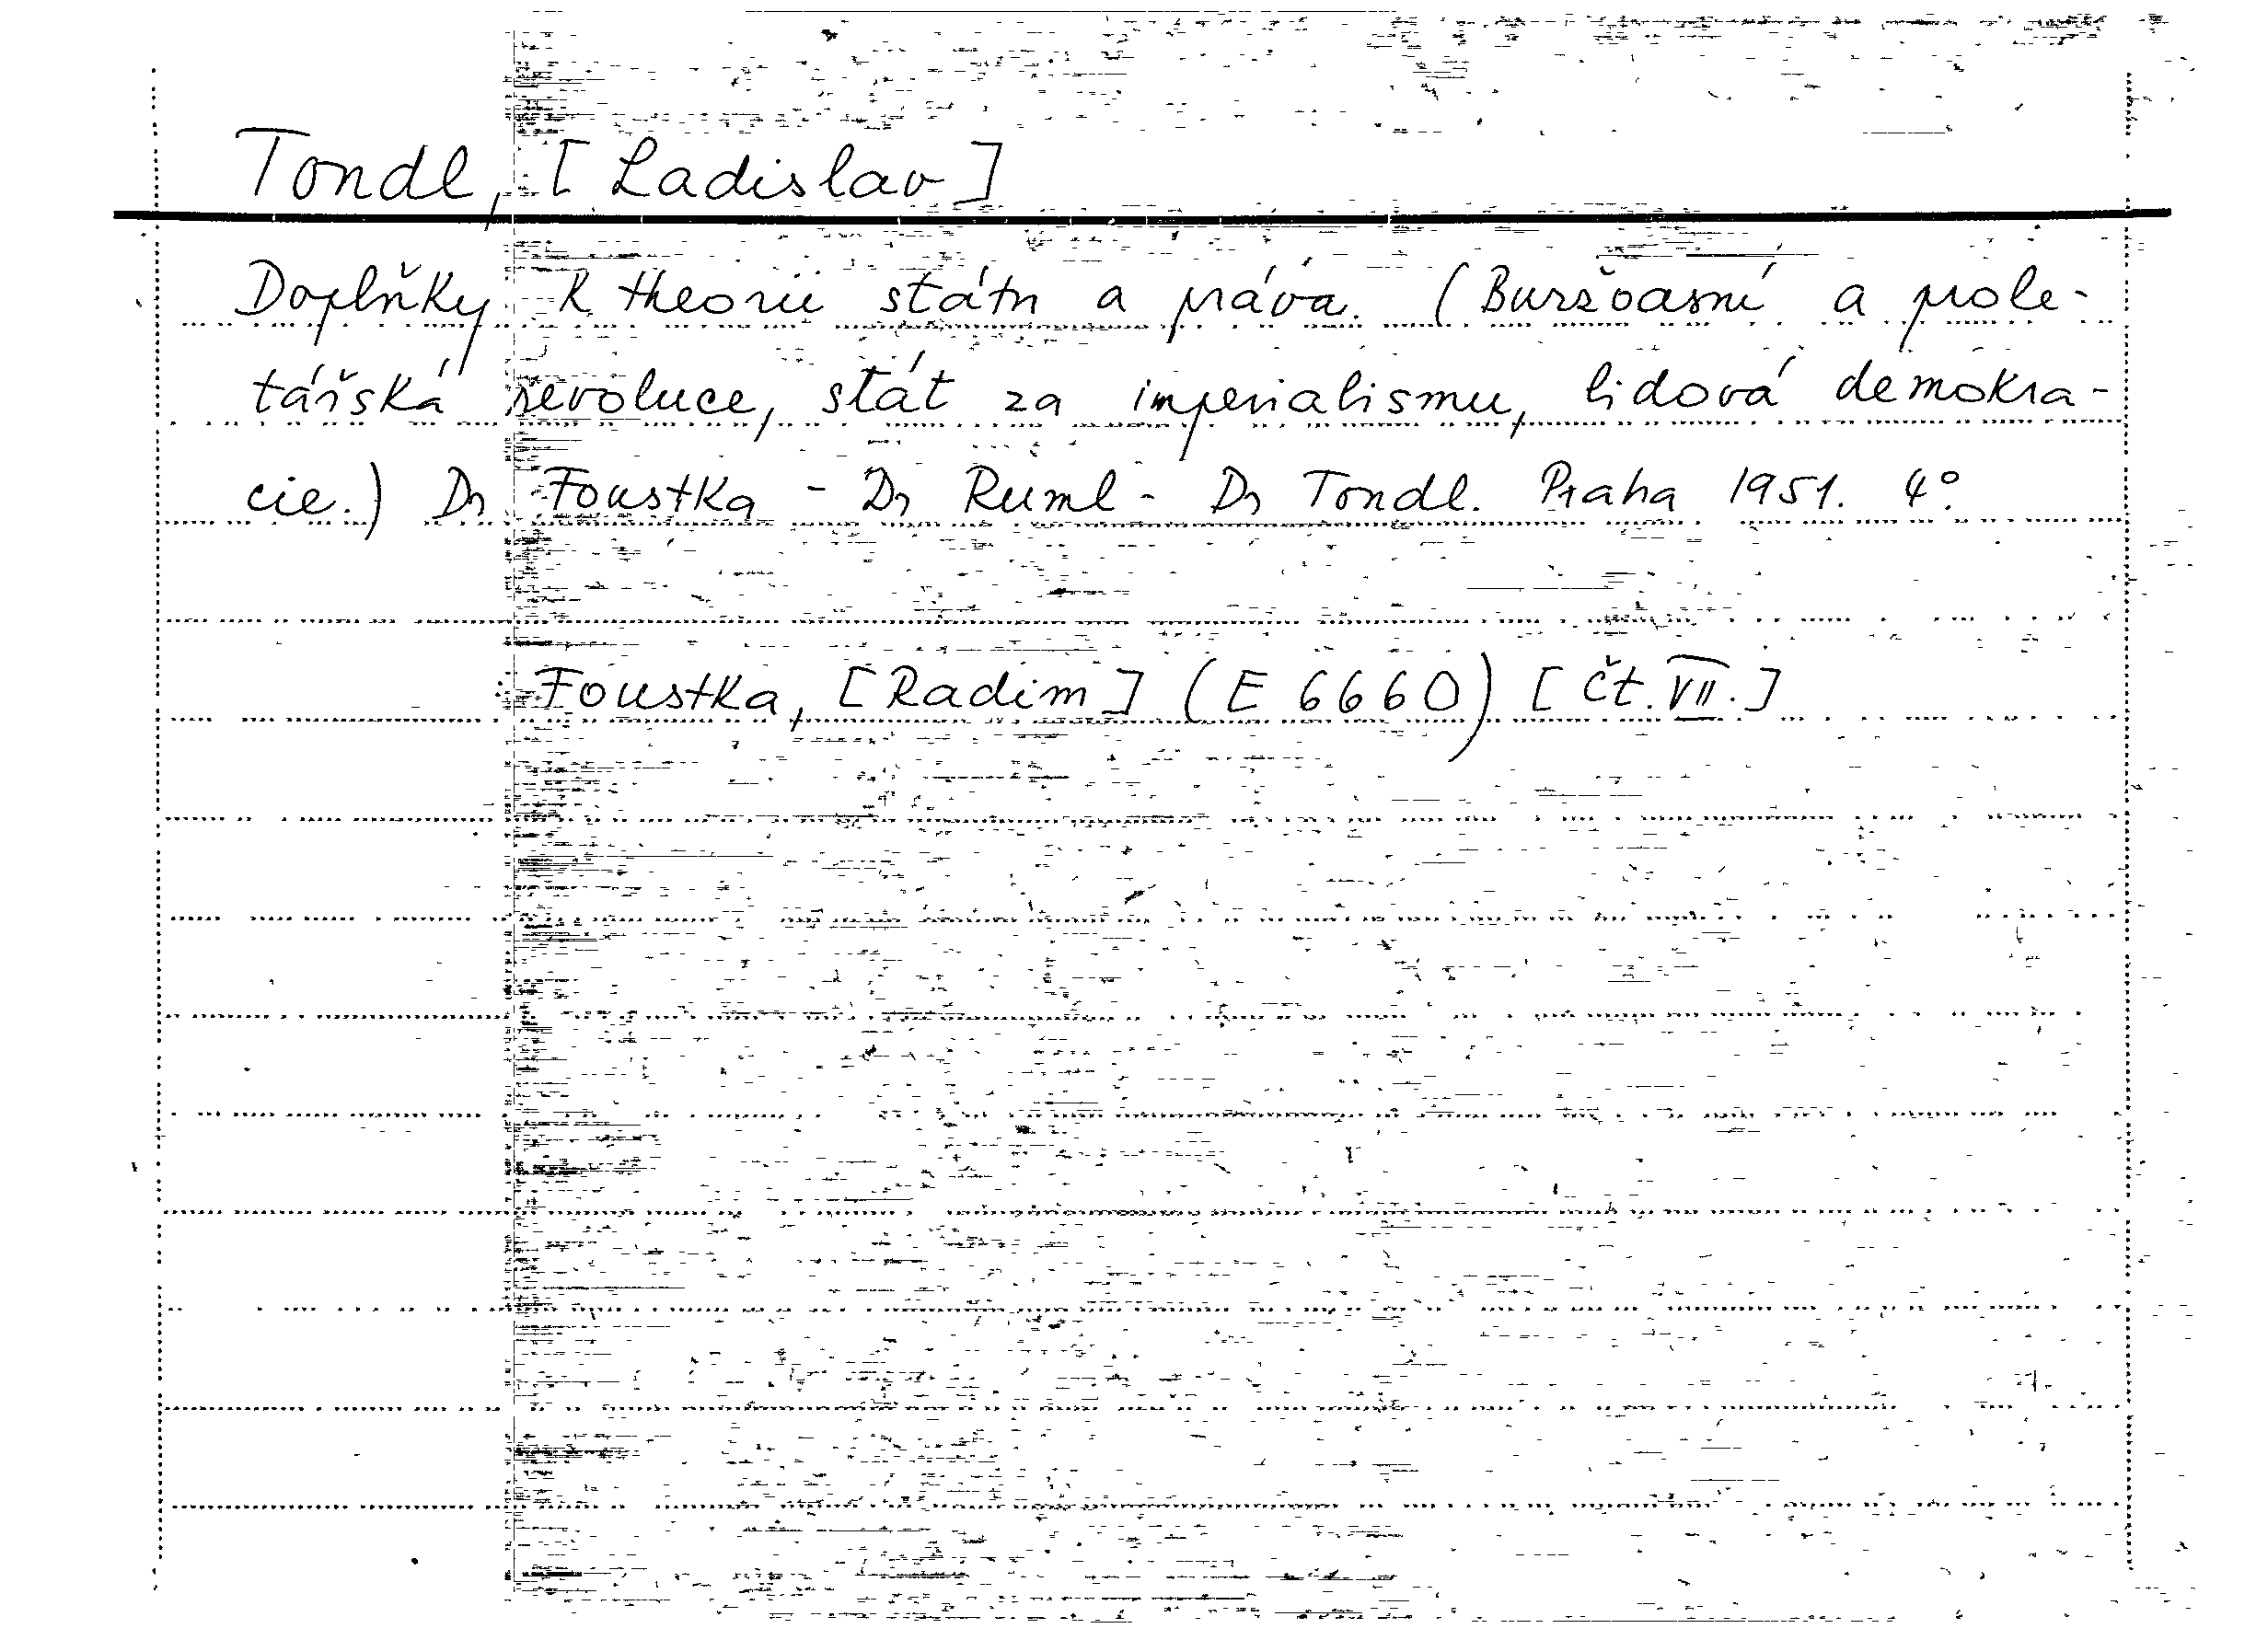 Tondl, [Ladislav]
Doplňky k theorii státu a práva. (Buržoasní a prole-
tářská revoluce, stát za imperialismu, lidová demokra-
cie.) Dr Foustka - Dr Ruml - Dr Tondl. Praha 1951. 4°.
Foustka, [Radim] (E 6660) [čt. VII.]